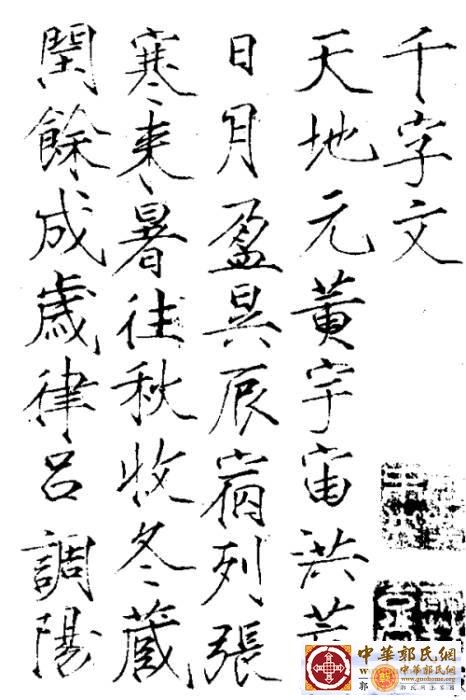 千字文
天地元黄宇宙洪荒
日月盈昃辰宿列張
寒来暑往秋收冬藏
閏餘成歲律呂調陽
中華郭氏網